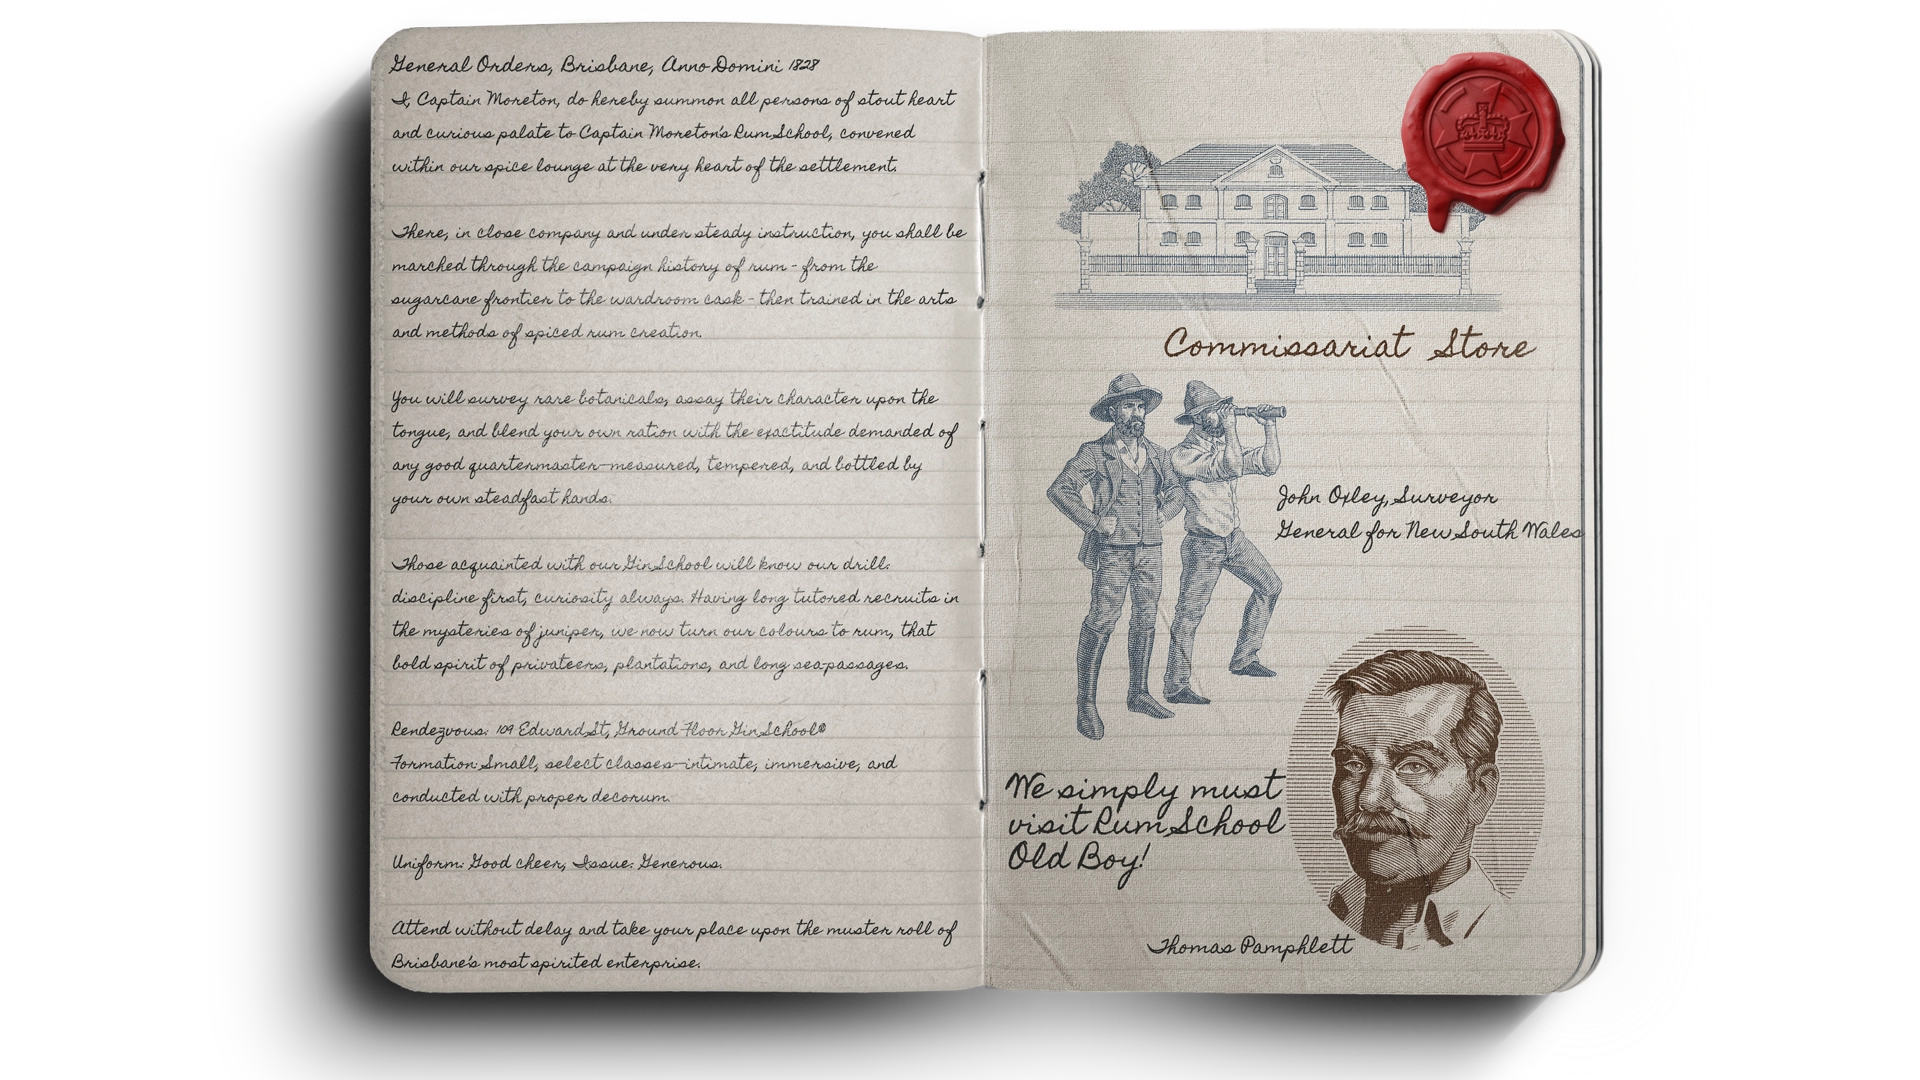 General Orders, Brisbane, Anno Domini 1828
I, Captain Moreton, do hereby summon all persons of stout heart
and curious palate to Captain Moreton's Rum School, convened
within our spice lounge at the very heart of the settlement.
There, in close company and under steady instruction, you shall be
marched through the campaign history of rum - from the
sugarcane frontier to the wardroom cask - then trained in the arts
and methods of spiced rum creation.
You will survey rare botanicals, assay their character upon the
tongue, and blend your own ration with the exactitude demanded of
any good quartermaster—measured, tempered, and bottled by
your own steadfast hands.
Those acquainted with our Gin School will know our drill:
discipline first, curiosity always. Having long tutored recruits in
the mysteries of juniper, we now turn our colours to rum, that
bold spirit of privateers, plantations, and long sea-passages.
Rendezvous: 109 Edward St, Ground Floor Gin School®
Formation: Small, select classes—intimate, immersive, and
conducted with proper decorum.
Uniform: Good cheer, Issue: Generous.
Attend without delay and take your place upon the muster roll of
Brisbane's most spirited enterprise.
Commissariat Store
John Oxley, Surveyor
General for New South Wales
We simply must
visit Rum School
Old Boy!
Thomas Pamphlett